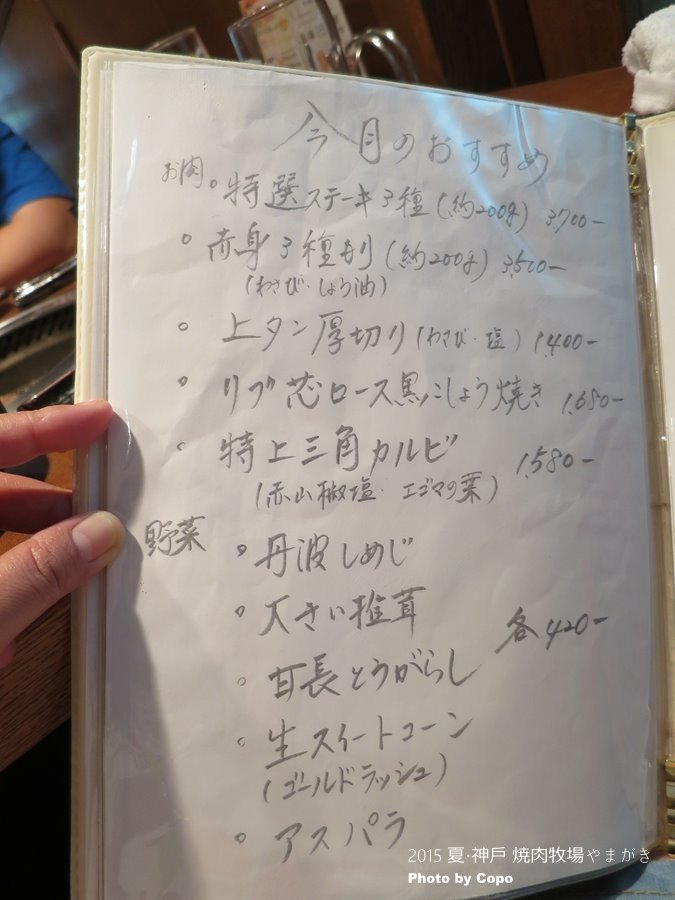 今月のおすすめ
お肉 ・特選ステーキ3種(約200g) 3,700-
・赤身3種もり(約200g) 3,500-
(わさび・しょう油)
・上タン厚切り(わさび・塩) 1,400-
・リブ芯ロース黒こしょう焼き 1,680-
・特上三角カルビ 1,580-
(赤山椒塩・エゴマの葉)
野菜 ・丹波しめじ
・大きい椎茸
各420-
・甘長とうがらし
・生スイートコーン
(ゴールドラッシュ)
・アスパラ
2015 夏·神戶 焼肉牧場やまがき
Photo by Copo